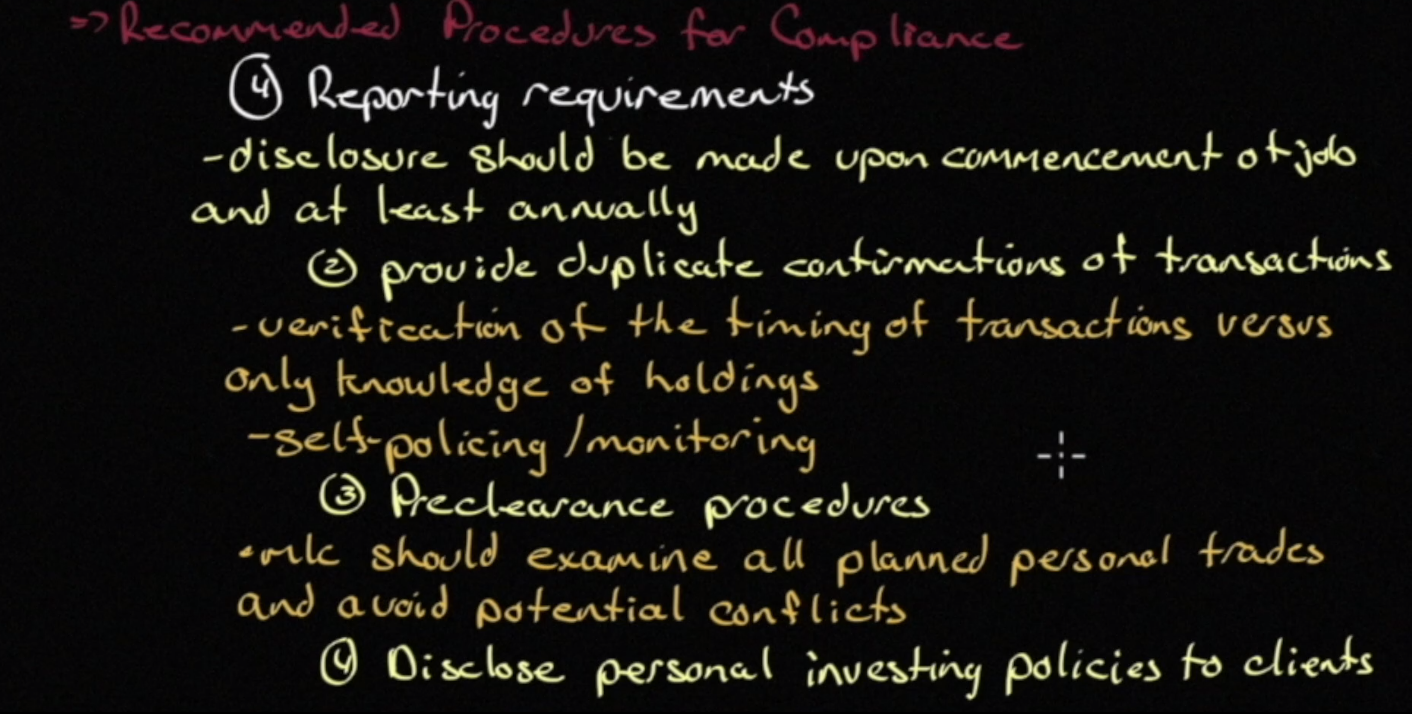 => Recommended Procedures for Compliance
④ Reporting requirements
- disclosure should be made upon commencement of job
and at least annually
② provide duplicate confirmations of transactions
- verification of the timing of transactions versus
only knowledge of holdings
- self-policing / monitoring
③ Preclearance procedures
• m/c should examine all planned personal trades
and avoid potential conflicts
④ Disclose personal investing policies to clients